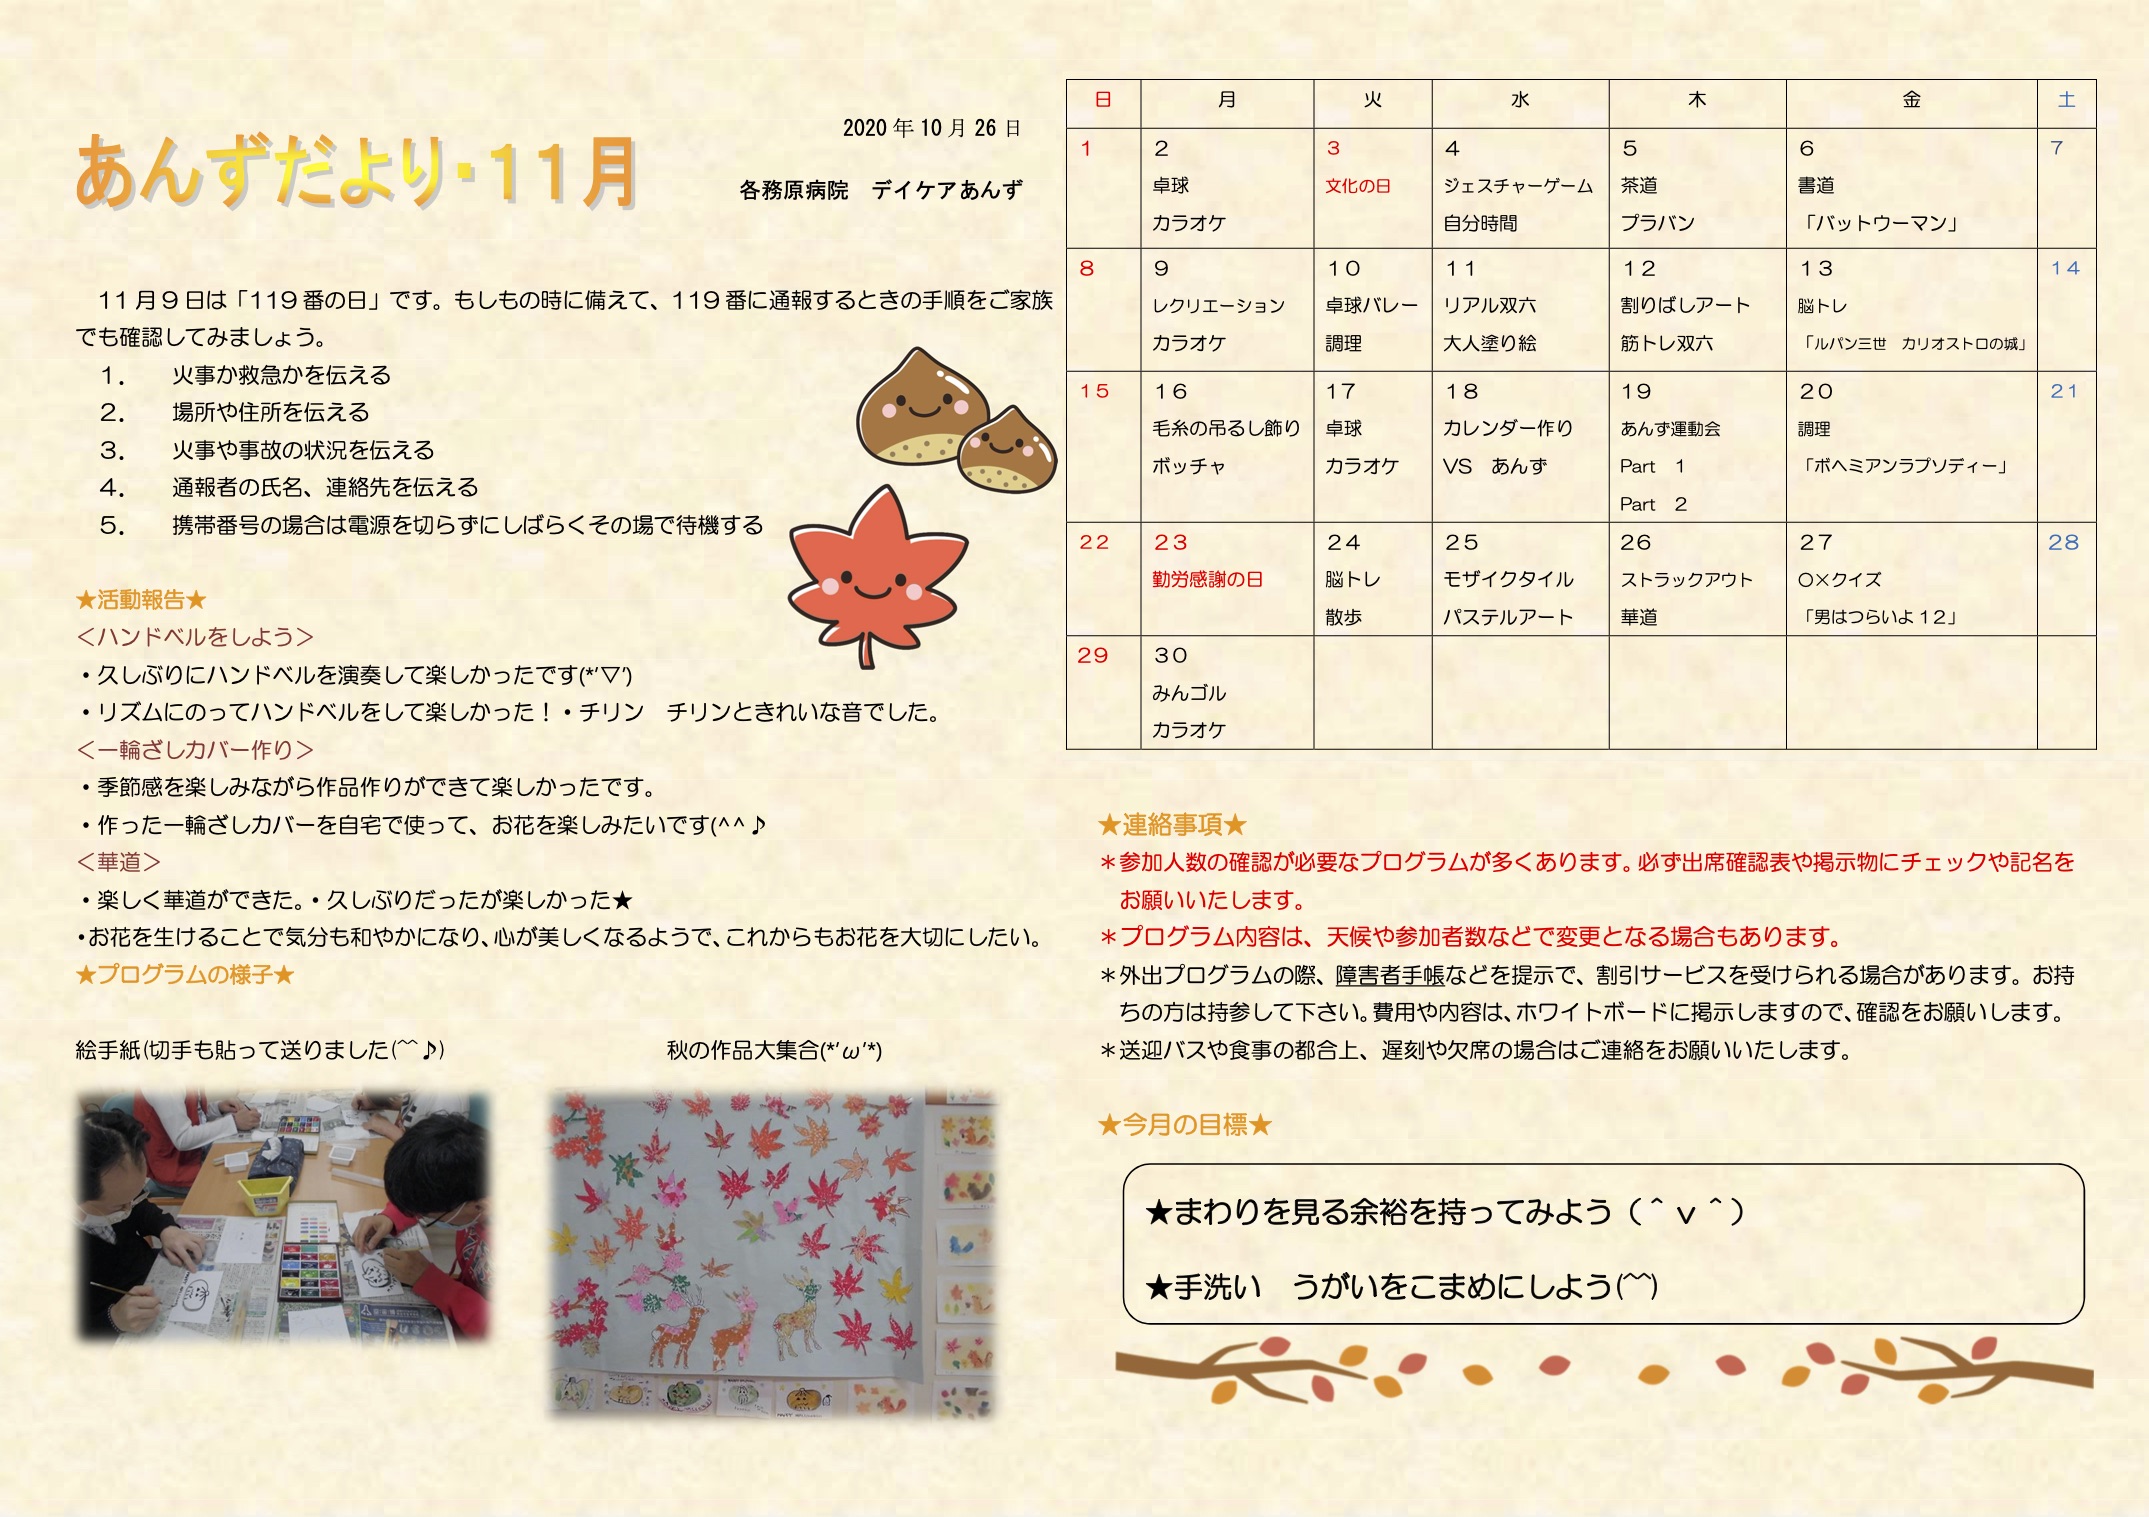 あんずだより・11月
2020年10月26日
各務原病院　デイケアあんず
11月9日は「119番の日」です。もしもの時に備えて、119番に通報するときの手順をご家族
でも確認してみましょう。
1.　火事か救急かを伝える
2.　場所や住所を伝える
3.　火事や事故の状況を伝える
4.　通報者の氏名、連絡先を伝える
5.　携帯番号の場合は電源を切らずにしばらくその場で待機する
★活動報告★
＜ハンドベルをしよう＞
・久しぶりにハンドベルを演奏して楽しかったです(*'▽')
・リズムにのってハンドベルをして楽しかった！・チリン　チリンときれいな音でした。
＜一輪ざしカバー作り＞
・季節感を楽しみながら作品作りができて楽しかったです。
・作った一輪ざしカバーを自宅で使って、お花を楽しみたいです(^^♪
＜華道＞
・楽しく華道ができた。・久しぶりだったが楽しかった★
・お花を生けることで気分も和やかになり、心が美しくなるようで、これからもお花を大切にしたい。
★プログラムの様子★
絵手紙(切手も貼って送りました(^^♪)
秋の作品大集合(*'ω'*)
日　月　火　水　木　金　土
1　2　3　4　5　6　7
卓球　文化の日　ジェスチャーゲーム　茶道　書道
カラオケ　自分時間　プラバン　「バットウーマン」
8　9　10　11　12　13　14
レクリエーション　卓球バレー　リアル双六　割りばしアート　脳トレ
カラオケ　調理　大人塗り絵　筋トレ双六　「ルパン三世　カリオストロの城」
15　16　17　18　19　20　21
毛糸の吊るし飾り　卓球　カレンダー作り　あんず運動会　調理
ボッチャ　カラオケ　VS　あんず　Part　1　「ボヘミアンラプソディー」
Part　2
22　23　24　25　26　27　28
勤労感謝の日　脳トレ　モザイクタイル　ストラックアウト　○×クイズ
散歩　パステルアート　華道　「男はつらいよ12」
29　30
みんゴル
カラオケ
★連絡事項★
＊参加人数の確認が必要なプログラムが多くあります。必ず出席確認表や掲示物にチェックや記名を
お願いいたします。
＊プログラム内容は、天候や参加者数などで変更となる場合もあります。
＊外出プログラムの際、障害者手帳などを提示で、割引サービスを受けられる場合があります。お持
ちの方は持参して下さい。費用や内容は、ホワイトボードに掲示しますので、確認をお願いします。
＊送迎バスや食事の都合上、遅刻や欠席の場合はご連絡をお願いいたします。
★今月の目標★
★まわりを見る余裕を持ってみよう（＾ｖ＾）
★手洗い　うがいをこまめにしよう(^^)